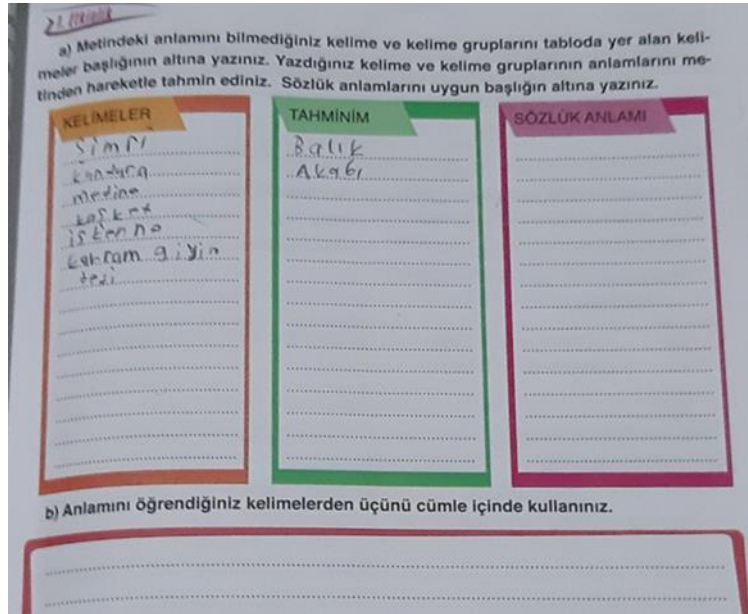 2. Etkinlik
a) Metindeki anlamını bilmediğiniz kelime ve kelime gruplarını tabloda yer alan keli-
meler başlığının altına yazınız. Yazdığınız kelime ve kelime gruplarının anlamlarını me-
tinden hareketle tahmin ediniz. Sözlük anlamlarını uygun başlığın altına yazınız.
KELİMELER
simri
kundura
medine
kasket
iskenno
kahram giyin
dedi
TAHMİNİM
Balık
Akabı
SÖZLÜK ANLAMI
b) Anlamını öğrendiğiniz kelimelerden üçünü cümle içinde kullanınız.